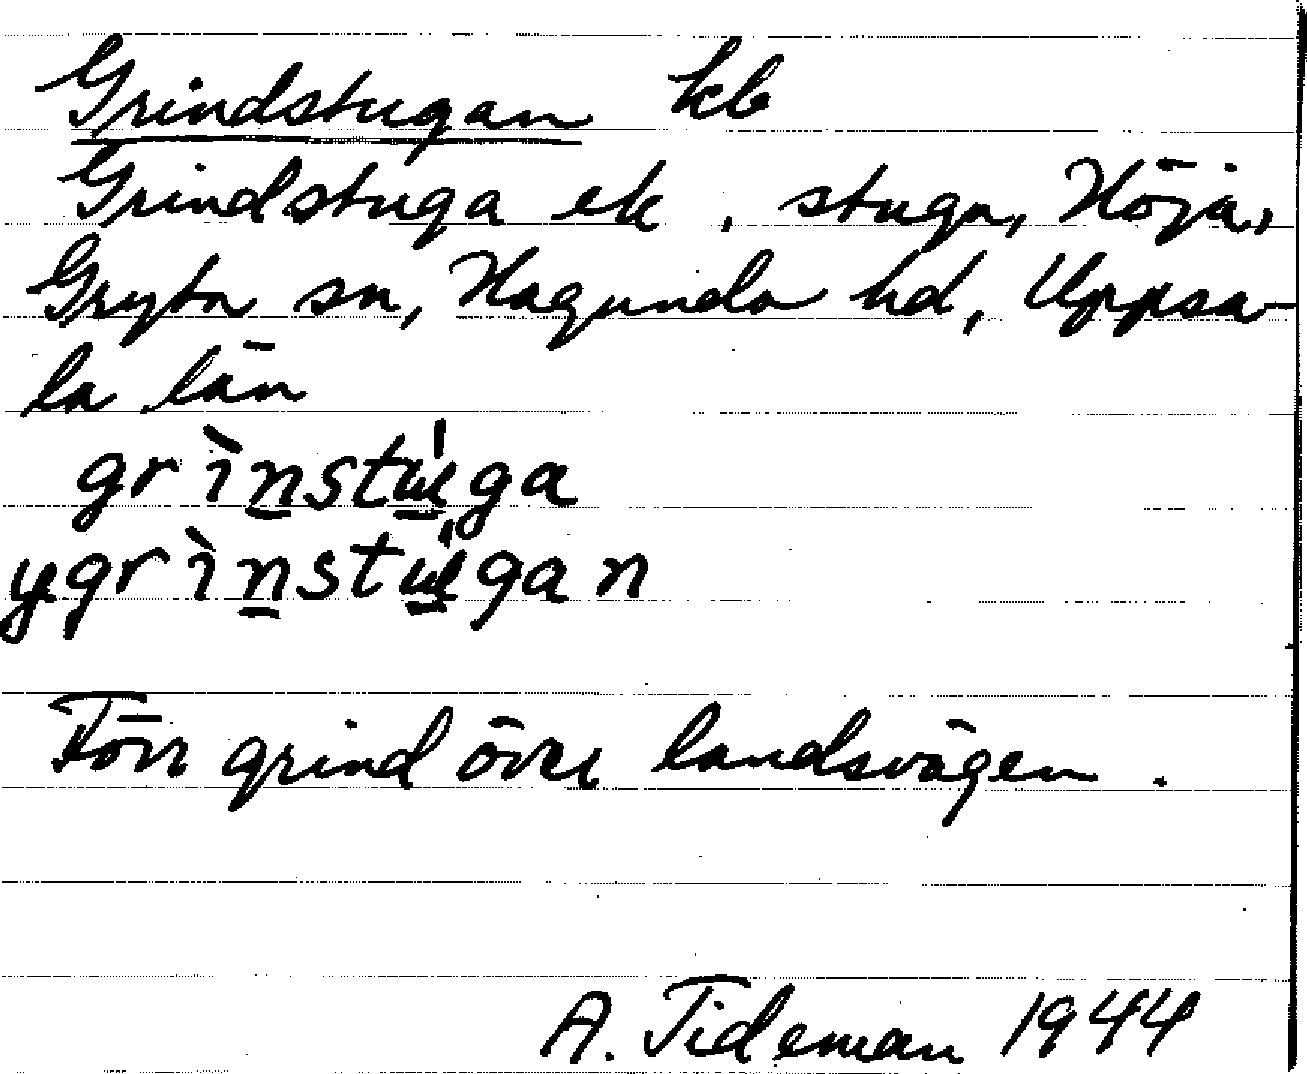 Grindstugan kb
Grindstuga ek, stuga, Höja,
Gryta sn, Hagunda hd, Uppsa-
la län
grìnstúga
ygrìnstúgan
Förr grind över landsvägen.
A. Tideman 1944